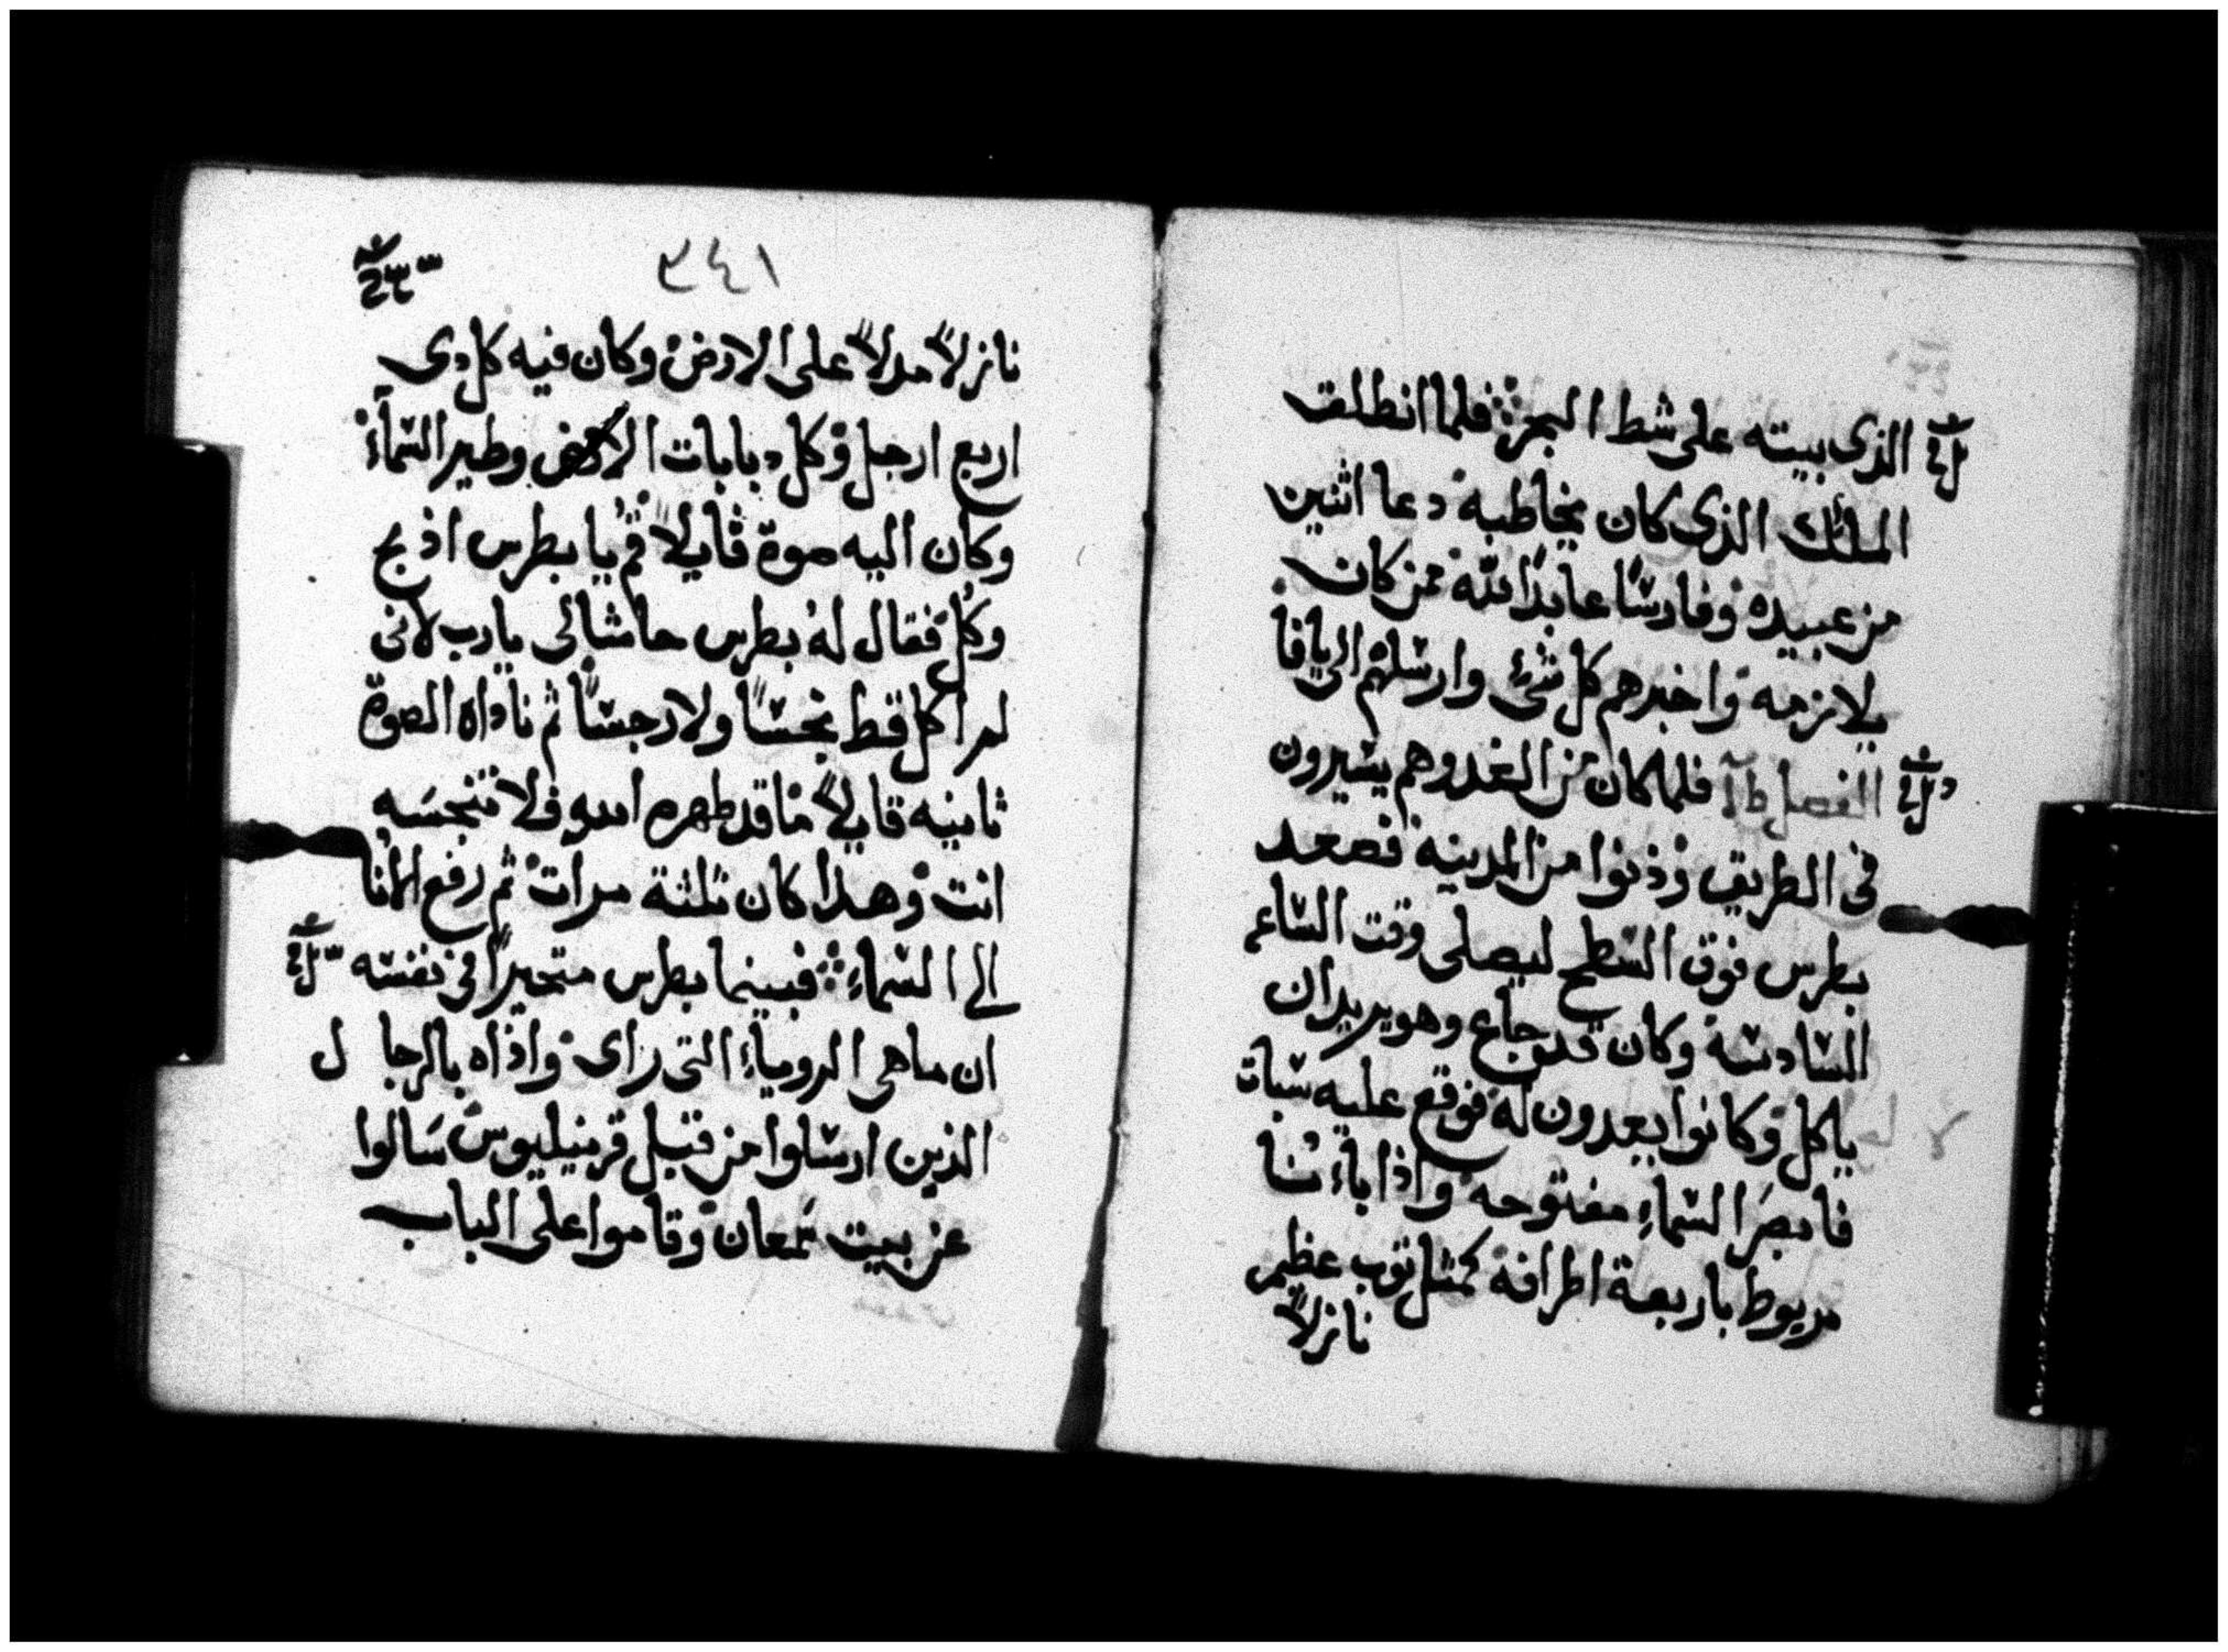 الذى بيته على شط البحر فلما انطلق
الملاك الذى كان يخاطبه دعا اثنين
من عبيده وفارسًا عابدًا لله ممن كان
يلازمه واخبرهم كل شئ وارسلهم الى يافا
الفصل فلما كان من الغد وهم يسيرون
فى الطريق ودنوا من المدينه فصعد
بطرس فوق السطح ليصلى وقت الساعه
السادسه وكان قد جاع وهو يريد ان
ياكل وكانوا يعدون له فوقع عليه سبات
فابصر السماء مفتوحه واذا باناء
مربوط باربعة اطرافه كمثل توب عظيم
نازلاً
٣٤١
نازلاً مدلاً على الارض وكان فيه كل دى
اربع ارجل وكل دبابات الارض وطير السمآء
وكان اليه صوة قايلاً قم يا بطرس اذبح
وكُل فقال له بطرس حاشا لى يا رب لانى
لم اكل قط نجسًا ولا رجسًا ثم ناداه الصوة
ثانيه قايلاً ما قد طهره الله فلا تنجسه
انت وهدا كان ثلثة مرات ثم رفع الانا
الى السماء فبينما بطرس متحيرًا فى نفسه
ان ما هى الروياء التى راى واذاه بالرجال
الذين ارسلوا من قبل قرنيليوس سالوا
عن بيت سمعان وقاموا على الباب